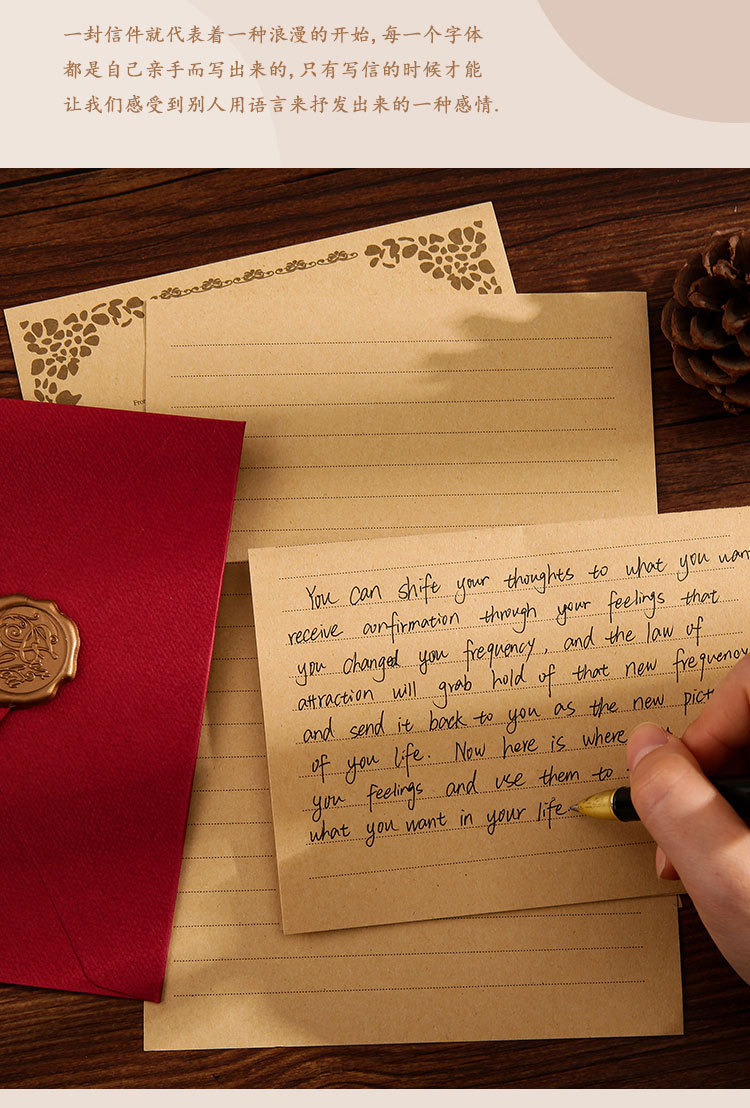 一封信件就代表着一种浪漫的开始,每一个字体
都是自己亲手而写出来的,只有写信的时候才能
让我们感受到别人用语言来抒发出来的一种感情.
From
You can shift your thoughts to what you want
receive confirmation through your feelings that
you changed you frequency, and the law of
attraction will grab hold of that new frequency
and send it back to you as the new
of you life. Now here is where
you feelings and use them to
what you want in your life